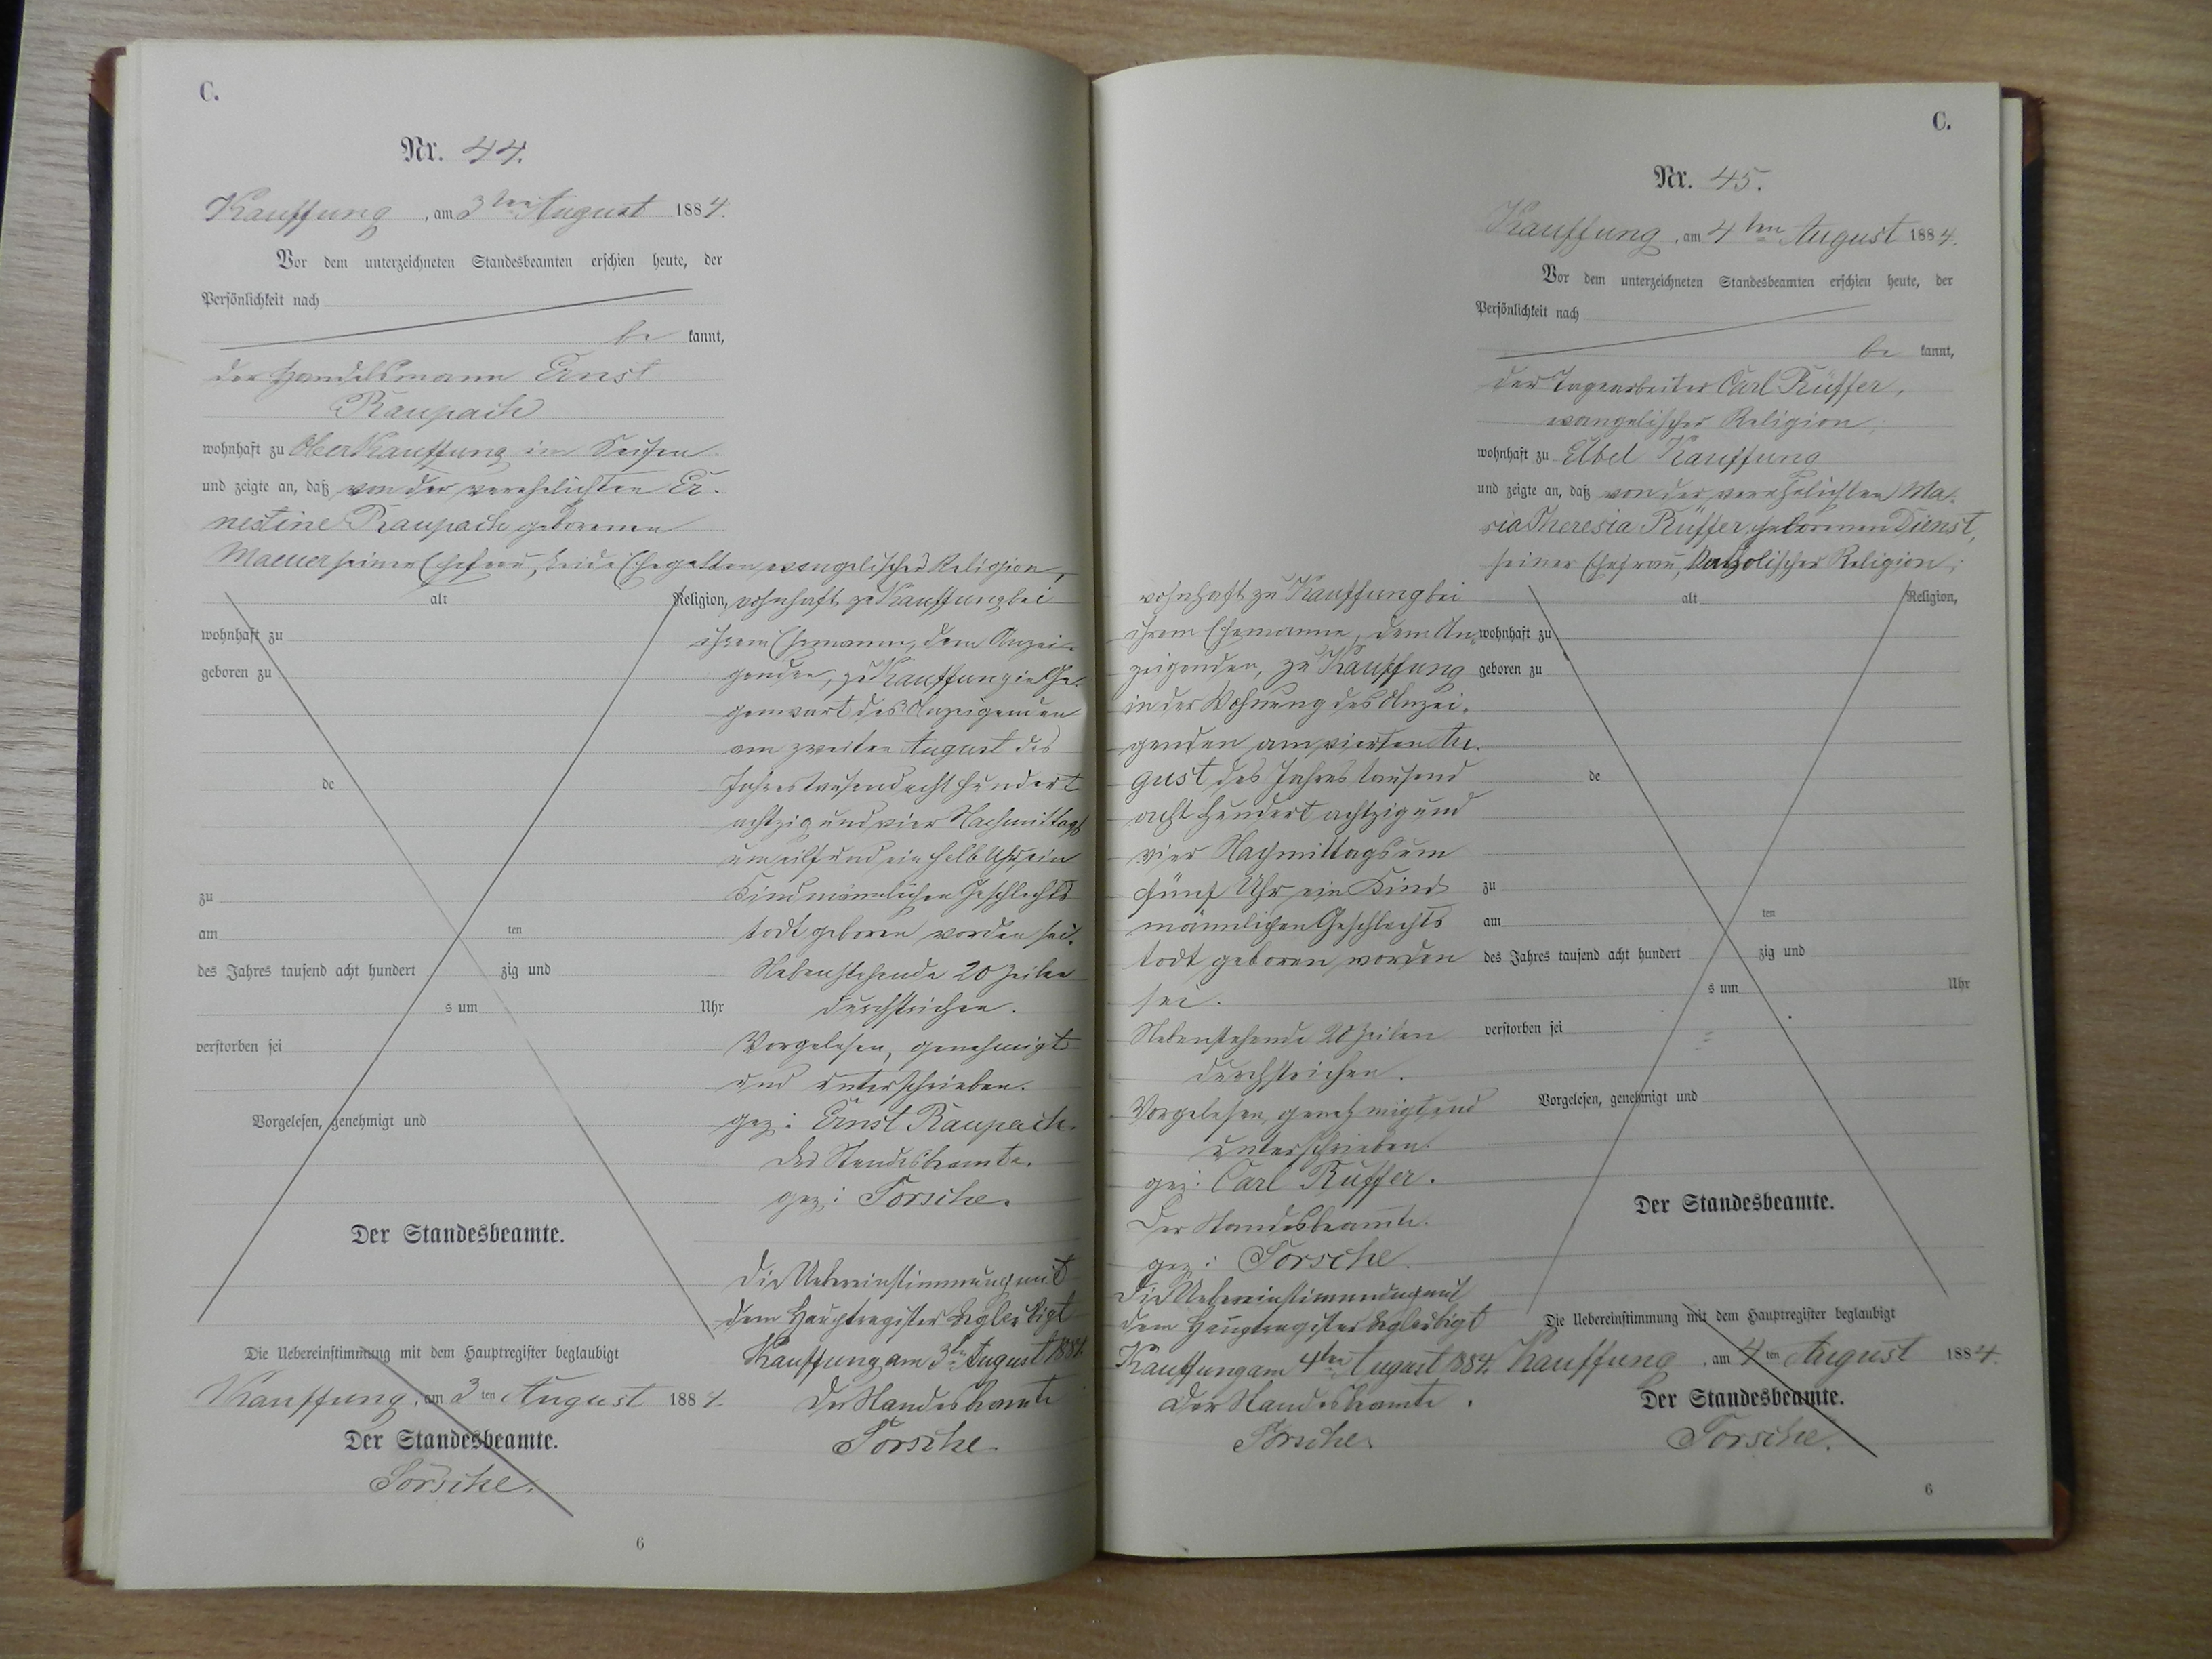 C.
Nr. 44.
Kauffung, am 3ten August 1884.
Vor dem unterzeichneten Standesbeamten erschien heute, der
Persönlichkeit nach
be kannt,
der Handelsmann Ernst
Raupach
wohnhaft zu Ober Kauffung im Seifen
und zeigte an, daß von der verehelichten Er-
nestine Raupach geborenen
Maeuer seiner Ehefrau, beide Ehegatten evangelischer Religion,
alt Religion,
wohnhaft zu
geboren zu
de
zu
am ten
des Jahres tausend acht hundert zig und
s um Uhr
verstorben sei
Vorgelesen, genehmigt und
Der Standesbeamte.
Die Uebereinstimmung mit dem Hauptregister beglaubigt
Kauffung, am 3ten August 1884.
Der Standesbeamte.
Torsche.
6
wohnhaft zu Kauffung bei
ihrem Ehemanne, dem Anzei-
genden, zu Kauffung in Ge-
genwart des Anzeigenden
am zweiten August des
Jahres tausend acht hundert
achtzig und vier Nachmittags
um eilf und ein halb Uhr ein
Kind männlichen Geschlechts
todt geboren worden sei.
Nebenstehende 20 Zeilen
durchstrichen.
Vorgelesen, genehmigt
und unterschrieben.
gez: Ernst Raupach.
Der Standesbeamte.
gez: Torsche.
Die Uebereinstimmung mit
dem Hauptregister beglaubigt
Kauffung am 3ten August 1884.
Der Standesbeamte
Torsche.
C.
Nr. 45.
Kauffung, am 4ten August 1884.
Vor dem unterzeichneten Standesbeamten erschien heute, der
Persönlichkeit nach
be kannt,
der Tagearbeiter Carl Rüffer,
evangelischer Religion,
wohnhaft zu Elbel Kauffung
und zeigte an, daß von der verehelichten Ma-
ria Theresia Rüffer, geborenen Dienst,
seiner Ehefrau, katholischer Religion,
wohnhaft zu Kauffung bei
ihrem Ehemanne, dem An-
zeigenden, zu Kauffung
in der Wohnung des Anzei-
genden am vierten Au-
gust des Jahres tausend
acht hundert achtzig und
vier Nachmittags um
fünf Uhr ein Kind
männlichen Geschlechts
todt geboren worden
sei.
Nebenstehende 20 Zeilen
durchstrichen.
Vorgelesen, genehmigt und
unterschrieben.
gez: Carl Rüffer.
Der Standesbeamte.
gez: Torsche.
Die Uebereinstimmung mit
dem Hauptregister beglaubigt
Kauffung am 4ten August 1884.
Der Standesbeamte.
Torsche.
alt Religion,
wohnhaft zu
geboren zu
de
zu
am ten
des Jahres tausend acht hundert zig und
s um Uhr
verstorben sei
Vorgelesen, genehmigt und
Der Standesbeamte.
Die Uebereinstimmung mit dem Hauptregister beglaubigt
Kauffung, am 4ten August 1884.
Der Standesbeamte.
Torsche.
6